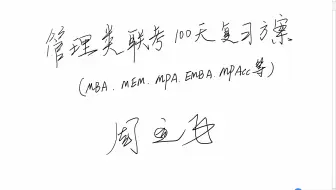 管理类联考100天复习方案
(MBA.MEM.MPA.EMBA.MPAcc等)
周